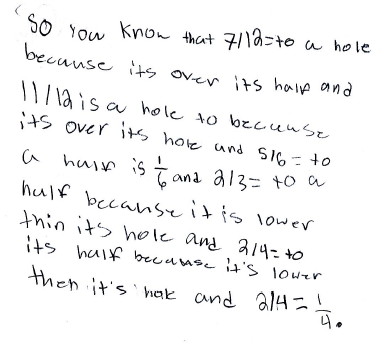 So You Know that 7/12=to a hole
because its over its half and
11/12 is a hole to because
its over its hole und 5/6 = to
a half is 1/6 and 2/3= to a
half because it is lower
thin its hole and 2/4= to
its half because it's lower
then it's hole and 2/4 = 1/4.